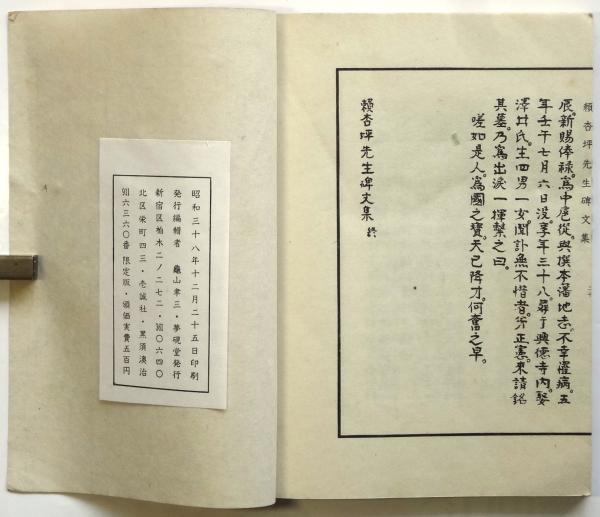 頼杏坪先生碑文集
辰。新賜俸禄。為中扈従。与撰本藩地志。不幸罹病。五
年壬午七月六日没。享年三十八。葬于興徳寺内。娶
澤井氏。生四男一女。聞訃無不惜者。弟正憲。来請銘
其墓。乃為出涙一揮繋之曰。
嗟如是人為國之寶。天已降才。何奪之早。
頼杏坪先生碑文集 終
昭和三十八年十二月二十五日印刷
発行編輯者 亀山聿三・夢硯堂発行
新宿区柏木二ノ二七二・㈹〇六四〇
北区栄町四三・壱誠社・黒須湊治
㈹六三六〇番 限定版・頒価実費五百円